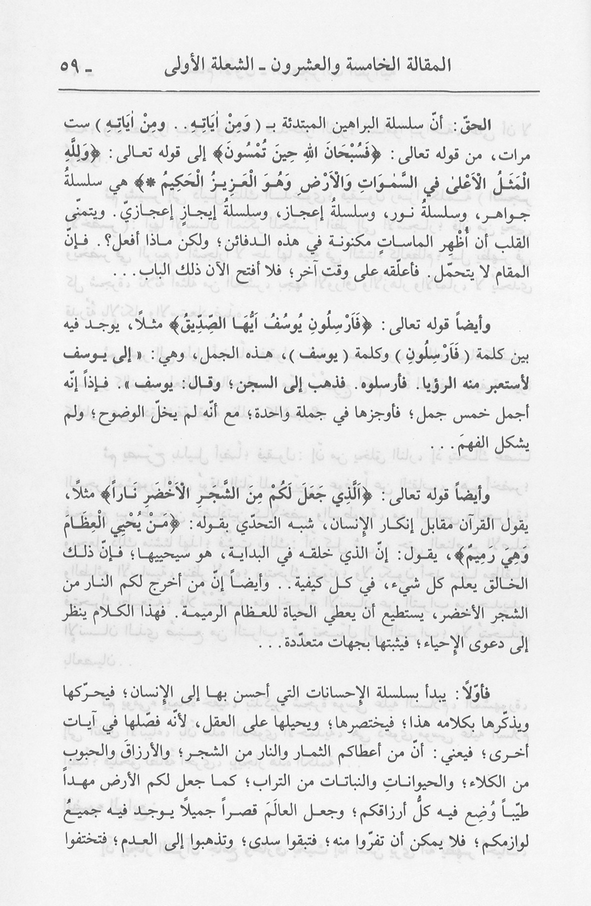 المقالة الخامسة والعشرون ـ الشعلة الأولى ـ ٥٩
الحقّ : أنّ سلسلة البراهين المبتدئة بـ ( وَمِنْ اٰيَاتِـهِ . . ومِنْ اٰيَاتِهِ ) ست
مرات، من قوله تعالى : ﴿فَسُبْحَانَ اللهِ حِينَ تُمْسُونَ﴾ إلى قوله تعـالى : ﴿وَلِلّٰهِ
الْمَثَـلُ الْأَعْلىٰ في السَّمٰـوَاتِ وَالْاَرْضِ وَهُـوَ الْعَزِيـزُ الْحَكِيمُ *﴾ هي سلسلةُ
جـواهـر، وسلسلةُ نـور، وسلسلة إعجاز، وسلسلةُ إيجازٍ إعجازيّ. ويتمنّى
القلب أن أُظْهِر الماسـاتِ مكنونـة في هذه الـدفائن ؛ ولكن مـاذا أفعل؟ . فـإنّ
المقام لا يتحمّل . فأعلّقه على وقت آخر ؛ فلا أفتح الآن ذلك الباب . . .
وأيضاً قوله تعالى : ﴿فَاَرْسِلُونِ يُوسُفُ اَيُّهَـا الصِّدِّيقُ﴾ مثـلاً، يوجـد فيه
بين كلمة ( فَاَرْسِلُونِ ) وكلمة ( يوسف )، هـذه الجمل، وهي : « إلى يـوسف
لأستعبر منه الرؤيا. فأرسلوه. فذهب إلى السجن ؛ وقال : يوسف ». فـإذاً إنّه
أجمل خمس جمل ؛ فأوجزها في جملة واحدة ؛ مع أنّه لم يخلّ الوضوح ؛ ولم
يشكل الفهمَ . . .
وأيضاً قوله تعالى : ﴿اَلَّذِي جَعَلَ لَكُمْ مِنَ الشَّجَـرِ الْاَخْضَرِ نَـاراً﴾ مثلاً،
يقول القرآن مقابل إنكار الإنسان، شبـه التحدّي بقـوله : ﴿مَـنْ يُحْيِي الْعِظَـامَ
وَهِيَ رَمِيمٌ﴾، يقـول : إنّ الذي خلقـه في البدايـة، هو سيحييهـا ؛ فـإنّ ذلـك
الخـالق يعلم كـل شيء، في كـل كيفية . . وأيضـاً إنّ من أخـرج لكم النار من
الشجر الأخضر، يستطيع أن يعطي الحياة للعـظام الرميمـة. فهذا الكـلام ينظر
إلى دعوى الإحياء ؛ فيثبتها بجهات متعدّدة . . .
فأوّلاً : يبدأ بسلسلة الإحسانات التي أحسن بهـا إلى الإنسان ؛ فيحـرّكها
ويذكّرها بكلامه هذا ؛ فيختصرها ؛ ويحيلها على العقل، لأنّه فصّلها في آيـات
أخـرى ؛ فيعني : أنّ من أعطاكم الثمـار والنار من الشجـر ؛ والأرزاق والحبوب
من الكلاء ؛ والحيوانـات والنباتـات من التراب ؛ كمـا جعل لكم الأرض مهـداً
طيّباً وُضِع فيـه كلُّ أرزاقكم ؛ وجعـل العالَمَ قصـراً جميلاً يـوجـد فيـه جميـعُ
لوازمكم ؛ فلا يمكن أن تفرّوا منه ؛ فتبقوا سدى ؛ وتذهبوا إلى العـدم ؛ فتختفوا